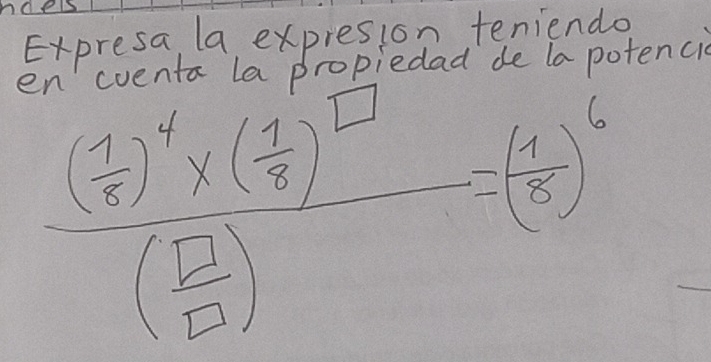 Expresa la expresion teniendo
en cuenta la propiedad de la potencia
(1/8)^4 x (1/8)^□
———— = (1/8)^6
(□/□)